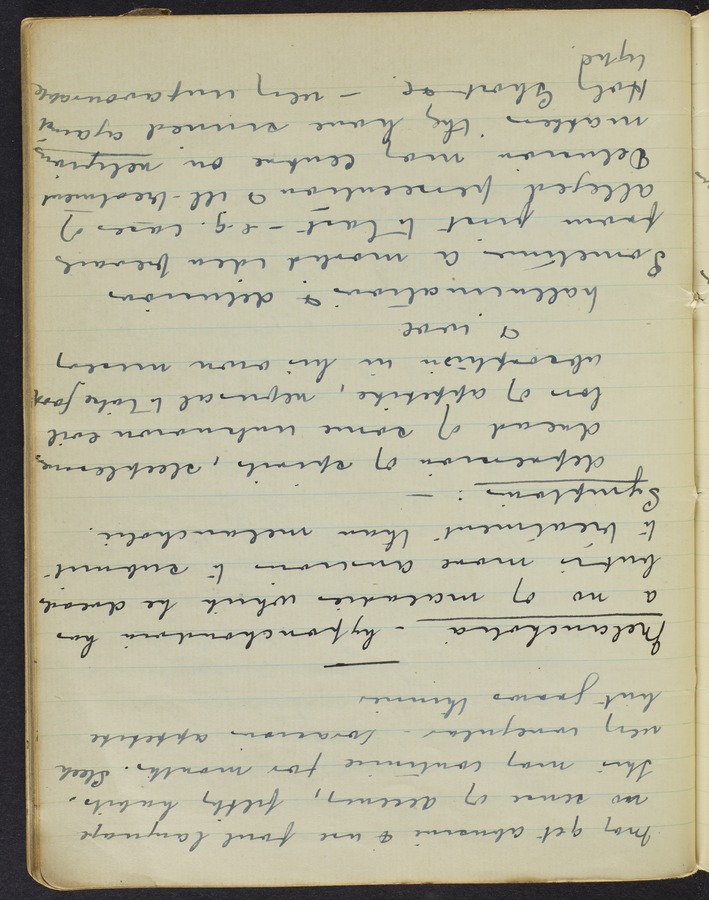 May get abusive & use foul language
no sense of decency, filthy habits.
This may continue for months. Sleep
very irregular - voracious appetite
but grows thinner
Melancholia - hypochondria has
a no of maladies which he dreads
but is more anxious to submit
to treatment than melancholic.
Symptoms : -
depression of spirits, sleeplessness
dread of some unknown evil
loss of appetite, refusal to take food
absorption in his own misery
& woe
hallucinations & delusions
Sometimes a morbid idea prevails
from first to last - e.g. cases of
alleged persecution & ill-treatment
Delusion may centre on religious
matters they have sinned against
Holy Ghost etc - very unfavourable
type